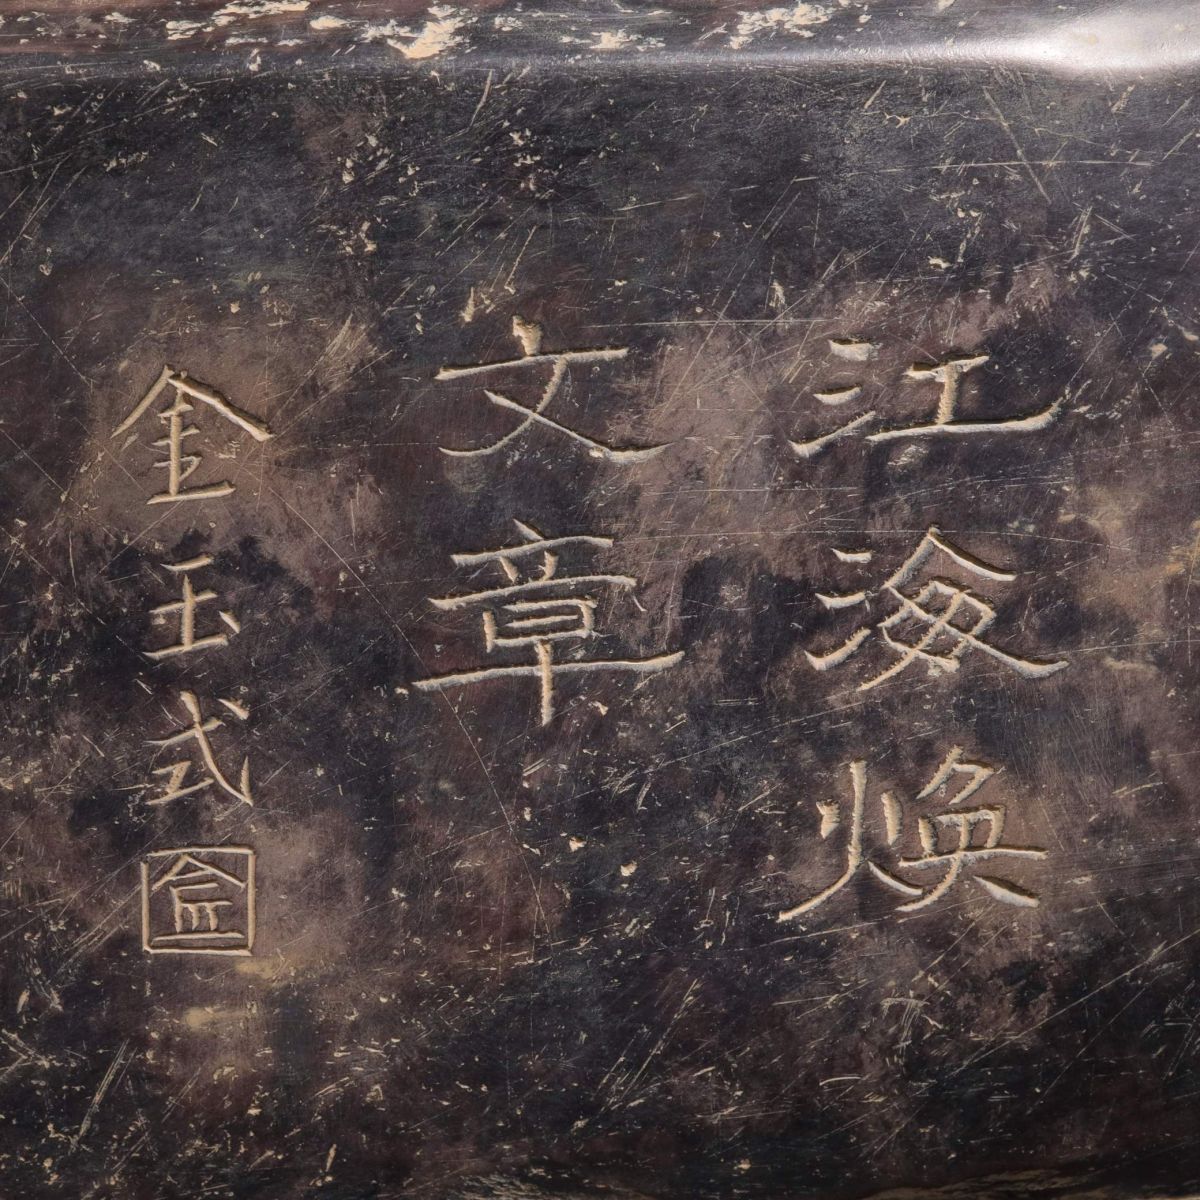 江海煥
文章
金玉式